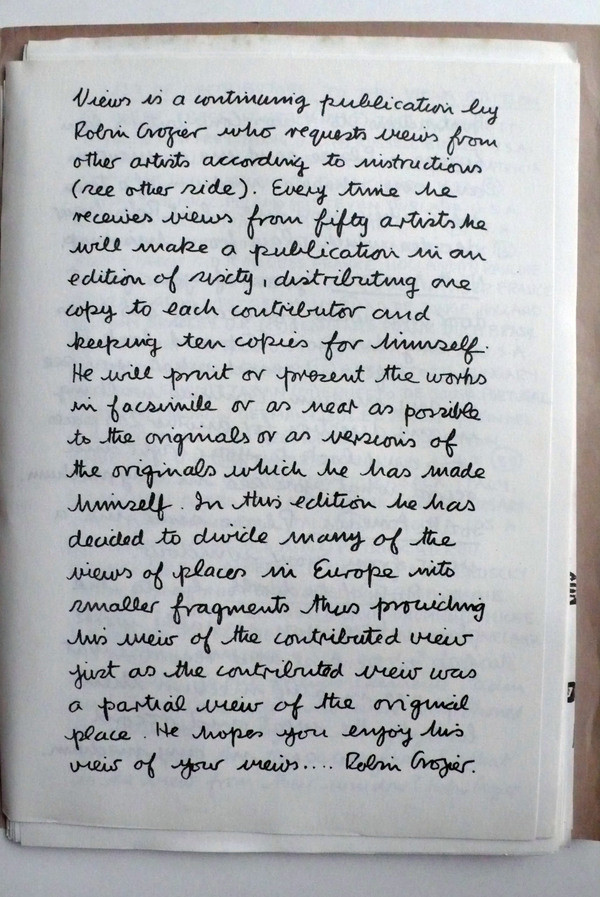 Views is a continuing publication by
Robin Crozier who requests views from
other artists according to instructions
(see other side). Every time he
receives views from fifty artists he
will make a publication in an
edition of sixty, distributing one
copy to each contributor and
keeping ten copies for himself.
He will print or present the works
in facsimile or as near as possible
to the originals or as versions of
the originals which he has made
himself. In this edition he has
decided to divide many of the
views of places in Europe into
smaller fragments thus providing
his view of the contributed view
just as the contributed view was
a partial view of the original
place. He hopes you enjoy his
view of your views.... Robin Crozier.